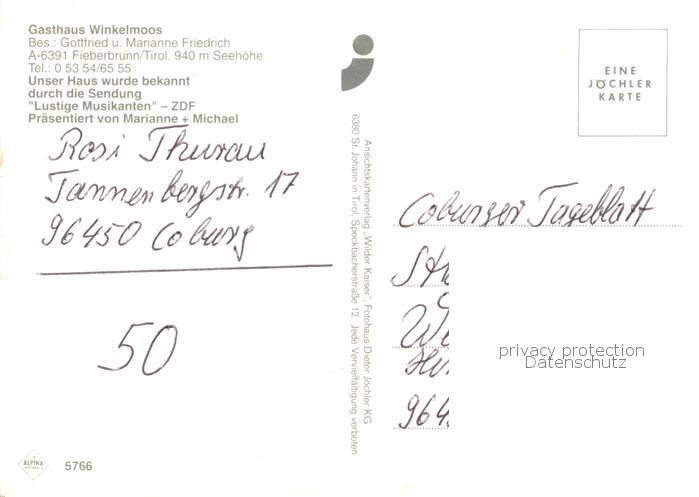 Gasthaus Winkelmoos
Bes.: Gottfried u. Marianne Friedrich
A-6391 Fieberbrunn/Tirol. 940 m Seehöhe
Tel.: 0 53 54/65 55
Unser Haus wurde bekannt
durch die Sendung
"Lustige Musikanten" – ZDF
Präsentiert von Marianne + Michael
Rosi Thurau
Tannenbergstr. 17
96450 Coburg
50
ALPINA
5766
Ansichtskartenverlag „Wilder Kaiser", Fotohaus Dieter Jöchler KG
6380 St. Johann in Tirol, Speckbacherstraße 12. Jede Vervielfältigung verboten
EINE
JÖCHLER
KARTE
Coburger Tageblatt
964
privacy protection
Datenschutz